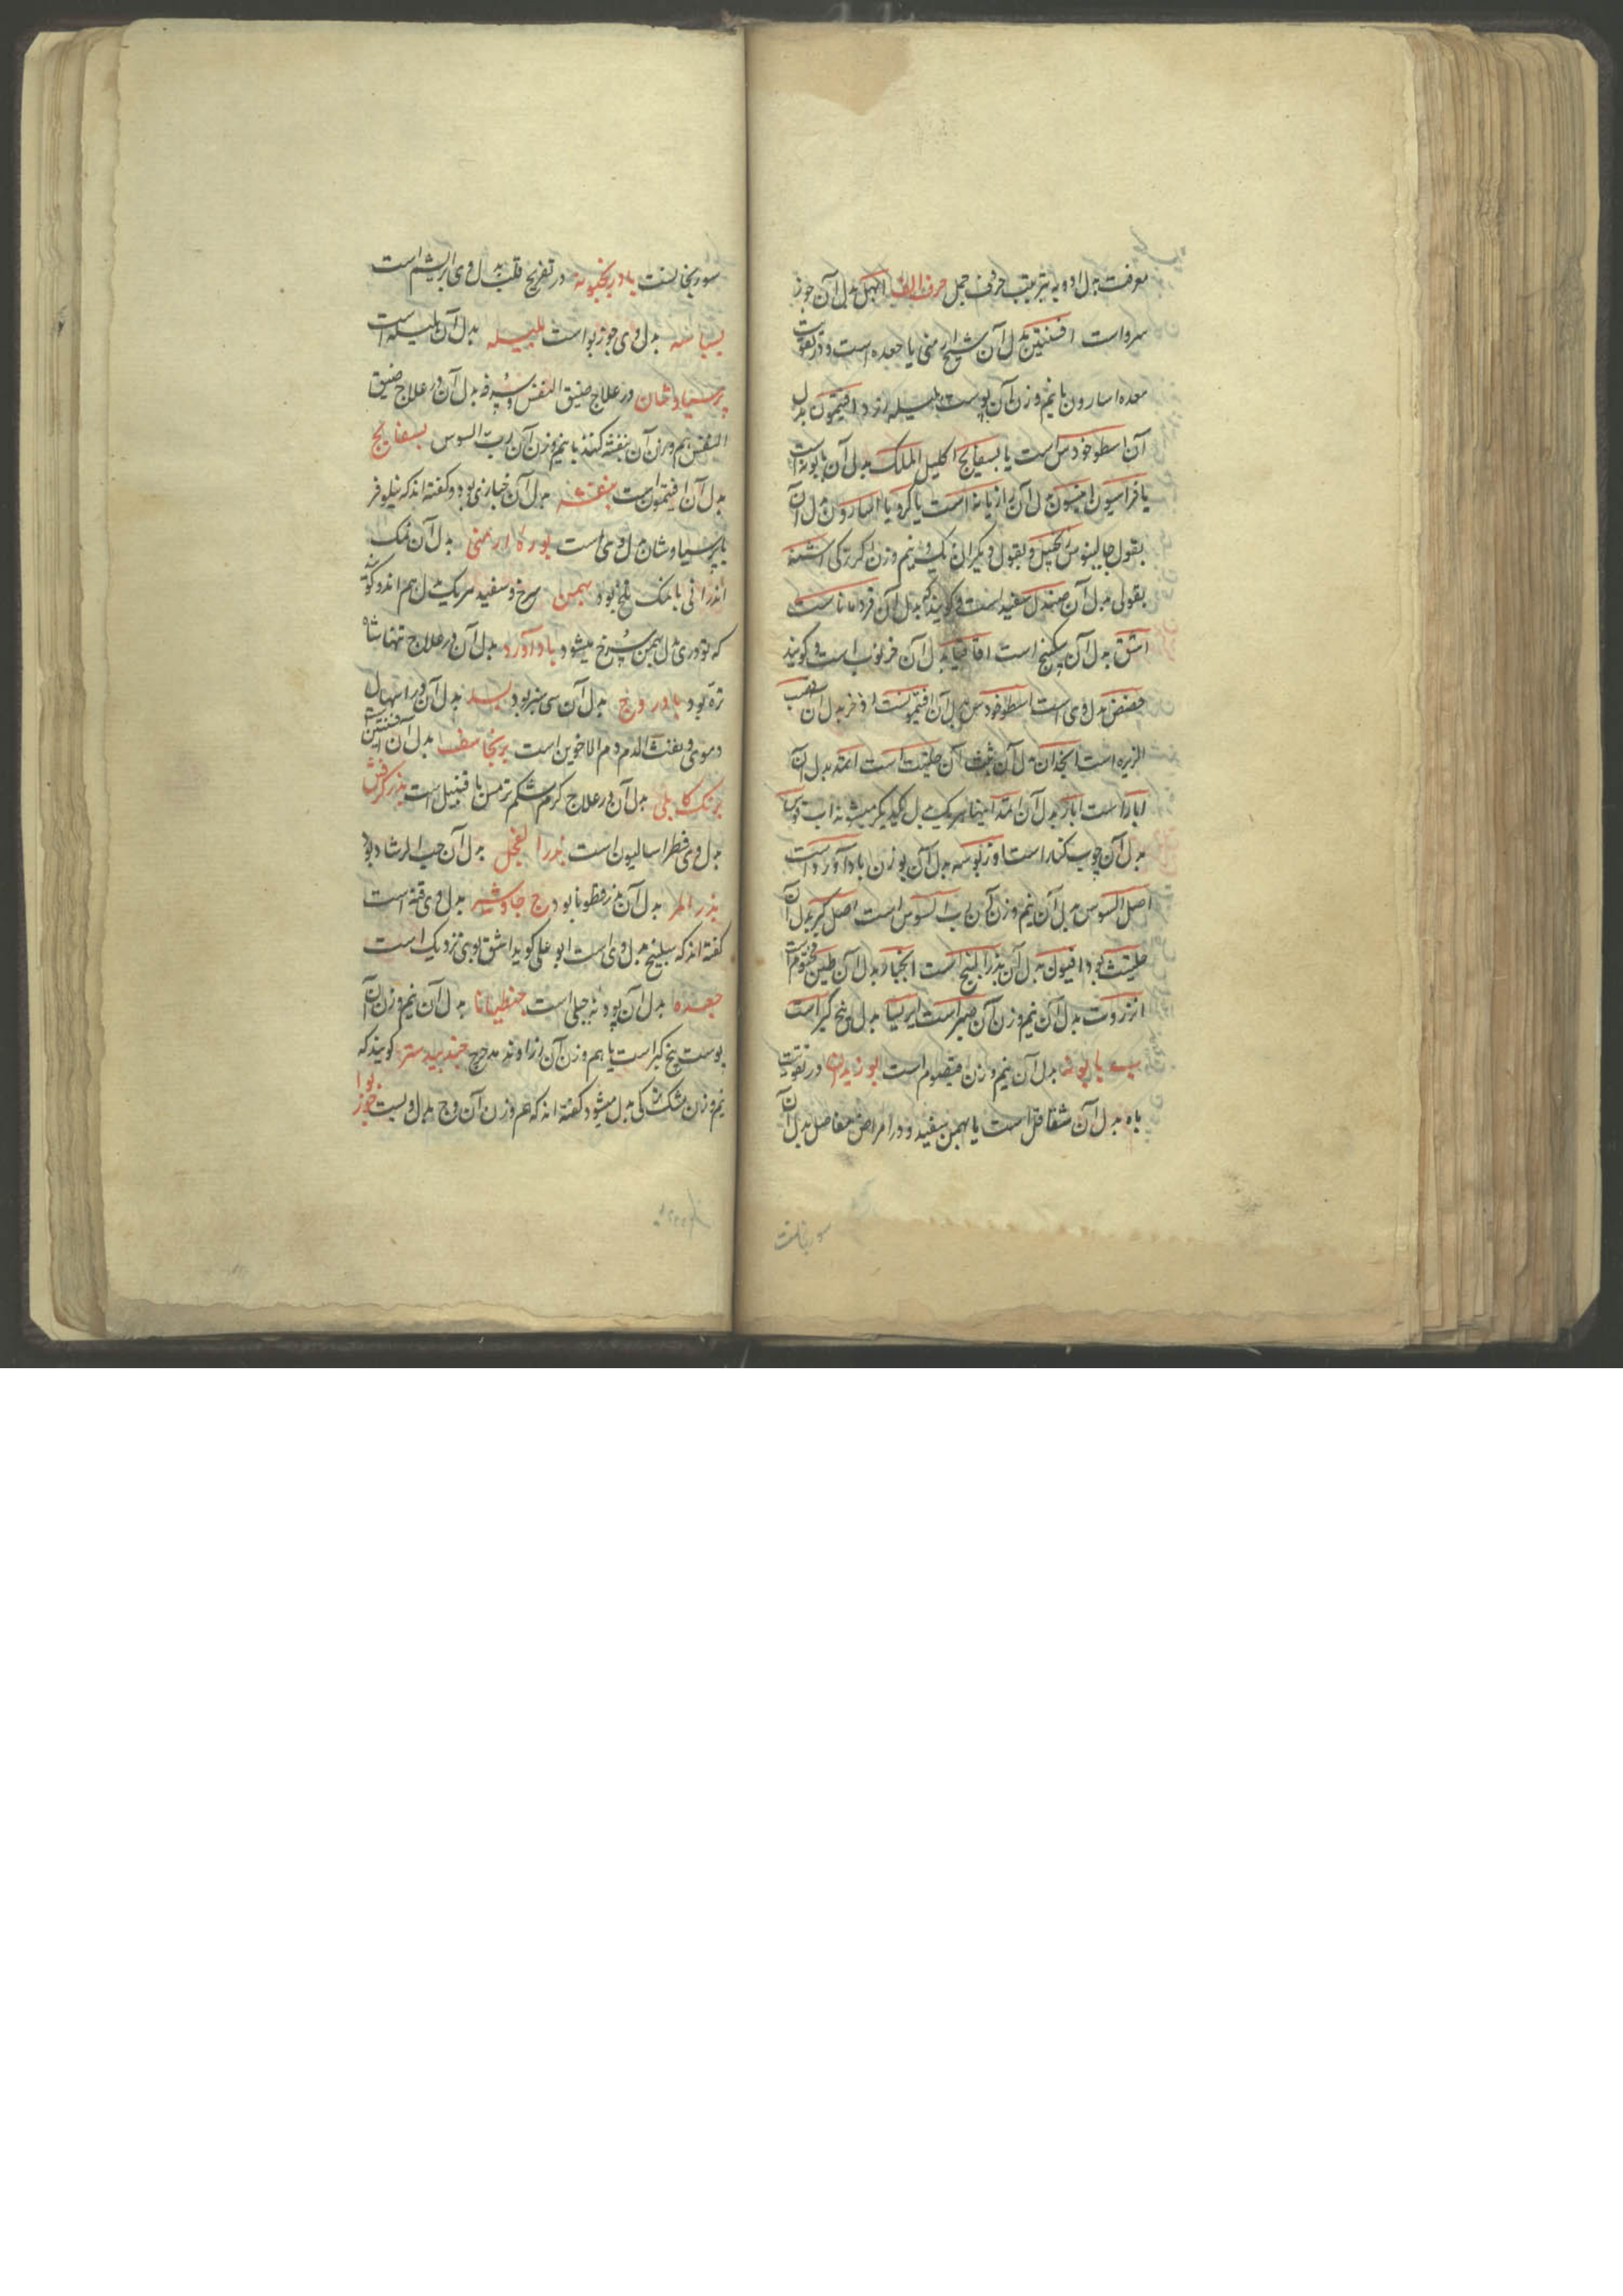 معرفت بدل ادویه بترتیب حروف جمل حرف الف ابهل بدل آن جوز
سرو است افسنتین بدل آن شیح ارمنی یا جعده است و در تقویت
معده اسارون با نیم وزن آن پوست هلیله زرد افتیمون بدل
آن اسطوخودس است یا بسفایج اکلیل الملک بدل آن بابونه است
یا فراسیون انیسون بدل آن رازیانه است یا کرویا اسارون بدل آن
بقول جالینوس زنجبیل و بقول دیگران یک و نیم وزن آن وج ترکی اشنه
بقولی بدل آن صندل سفید است و گویند که بدل آن قردمانا است
اشق بدل آن سکبینج است اقاقیا بدل آن خرنوب است و گویند
حضض بدل وی است اسطوخودس بدل آن افتیمونست اذخر بدل آن قصب
الزیره است انجدان بدل آن ثلث آن حلتیت است اثمد بدل آن
ابار است ابار بدل آن اثمد اینها هریک بدل یکدیگر میشوند
بدل آن چوب کنار است بدل آن بوزن باداورد است
اصل السوس بدل آن نیم وزن آن رب السوس است اصل کبر بدل آن
حلتیت بود افیون بدل آن بذر البنج است انجبار بدل آن طین مختوم است
انزروت بدل آن نیم وزن آن صبر است ایرسا بدل بیخ کبر است
ب بابونه بدل آن نیم وزن قیصوم است بوزیدان در تقویت
باه بدل آن شقاقل است یا بهمن سفید و در امراض مفاصل بدل آن
سورنجانست
سورنجانست بادرنجبویه در تفریح قلب بدل وی ابریشم است
بسباسه بدل وی جوزبوا است بلیله بدل آن هلیله است
پرسیاوشان در علاج ضیق النفس و سرفه بدل آن در علاج ضیق
النفس هم وزن آن بنفشه کنند با نیم وزن آن رب السوس بسفایج
بدل آن افتیمون است بنفشه بدل آن خبازی بود و گفته اند که نیلوفر
یا پرسیاوشان بدل وی است بوره ارمنی بدل آن نمک
اندرانی یا نمک تلخ بود بهمن سرخ و سفید هریک بدل هم اند و گویند
که تودری بدل بهمن سرخ میشود باداورد بدل آن در علاج تبها شاه
تره بود بادروج بدل آن سی سنبر بود بسد بدل آن در اسهال
دموی و نفث الدم دم الاخوین است برنجاسف بدل آن افسنتین است
برنک کابلی بدل آن در علاج کرم شکم ترمس یا قنبیل است بذر کرفس
بدل وی فطراسالیون است بذر الفجل بدل آن حب الرشاد بود
بذر المر بدل آن بذر قطونا بود ج جاوشیر بدل وی قنه است
گفته اند که سکبینج بدل وی است ابو علی گوید اشق بوی نزدیک است
جعده بدل آن پودنه جبلی است جنطیانا بدل آن نیم وزن آن
پوست بیخ کبر است یا هم وزن آن زراوند مدحرج جندبیدستر گویند که
نیم وزن مشک بدل میشود گفته اند که هم وزن آن وج بدل ویست جوز بوا